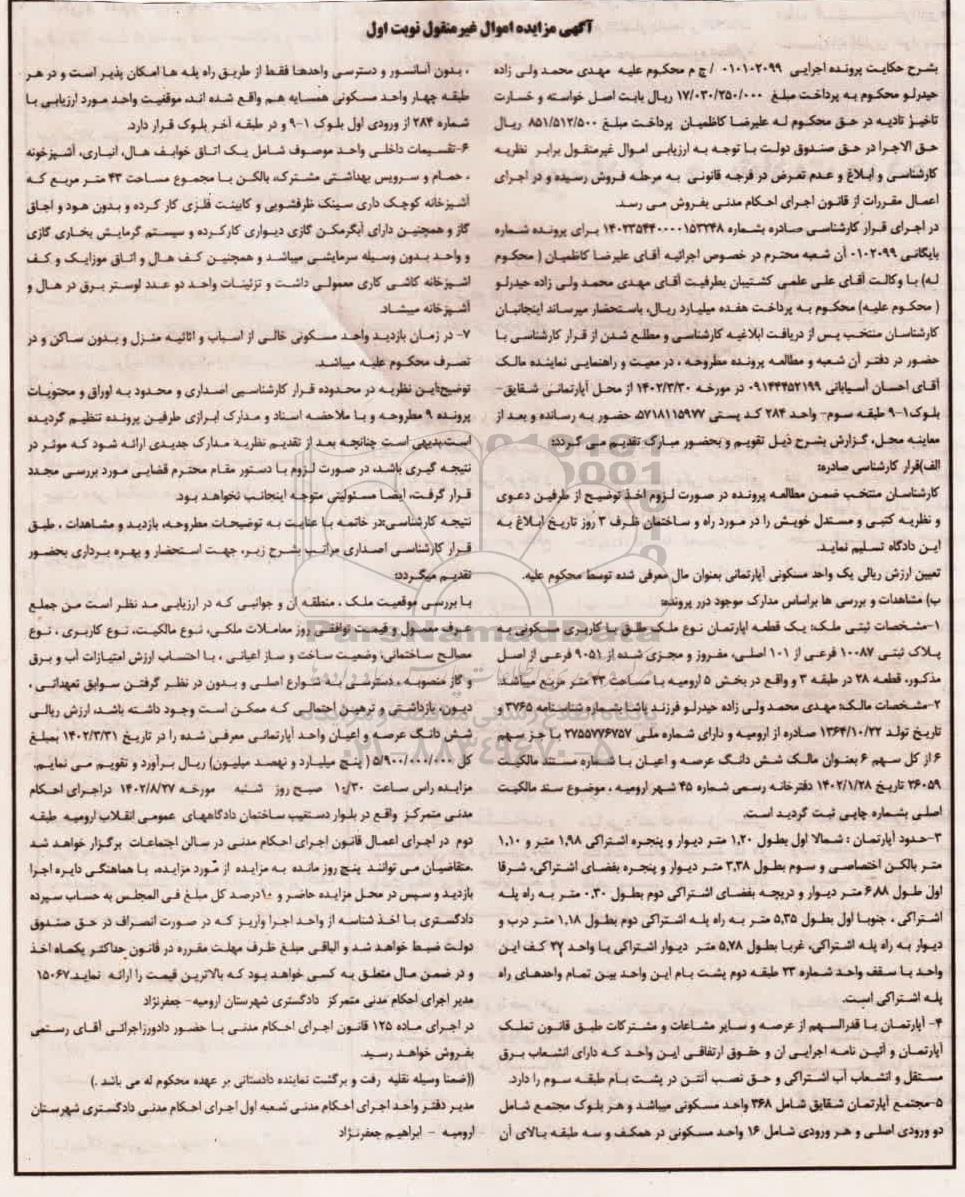 آگهی مزایده اموال غیرمنقول نوبت اول
بشرح حکایت پرونده اجرایی ۰۱۰۱۰۲۰۹۹ / ج م محکوم علیه مهدی محمد ولی زاده
حیدرلو محکوم به پرداخت مبلغ ۱۷/۰۳۰/۲۵۰/۰۰۰ ریال بابت اصل خواسته و خسارت
تاخیر تادیه در حق محکوم له علیرضا کاظمیان پرداخت مبلغ ۸۵۱/۵۱۲/۵۰۰ ریال
حق الاجرا در حق صندوق دولت با توجه به ارزیابی اموال غیرمنقول برابر نظریه
کارشناسی و ابلاغ و عدم تعرض در فرجه قانونی به مرحله فروش رسیده و در اجرای
اعمال مقررات از قانون اجرای احکام مدنی بفروش می رسد.
در اجرای قرار کارشناسی صادره بشماره ۱۴۰۲۳۵۴۴۰۰۰۰۱۵۳۲۴۸ برای پرونده شماره
بایگانی ۰۱۰۲۰۹۹ آن شعبه محترم در خصوص اجرائیه آقای علیرضا کاظمیان ( محکوم
له) با وکالت آقای علی علمی کشتیبان بطرفیت آقای مهدی محمد ولی زاده حیدرلو
( محکوم علیه) محکوم به پرداخت هفده میلیارد ریال، باستحضار میرساند اینجانبان
کارشناسان منتخب پس از دریافت ابلاغیه کارشناسی و مطلع شدن از قرار کارشناسی با
حضور در دفتر آن شعبه و مطالعه پرونده مطروحه ، در معیت و راهنمایی نماینده مالک
آقای احسان آسیابانی ۰۹۱۴۴۴۵۲۱۹۹ در مورخه ۱۴۰۲/۳/۳۰ از محل آپارتمانی شقایق-
بلوک۱-۹ طبقه سوم- واحد ۲۸۴ کد پستی ۵۷۱۸۱۱۵۹۷۷، حضور به رسانده و بعد از
معاینه محل، گزارش بشرح ذیل تقویم و بحضور مبارک تقدیم می گردد:
الف)قرار کارشناسی صادره:
کارشناسان منتخب ضمن مطالعه پرونده در صورت لزوم اخذ توضیح از طرفین دعوی
و نظریه کتبی و مستدل خویش را در مورد راه و ساختمان ظرف ۳ روز تاریخ ابلاغ به
این دادگاه تسلیم نماید.
تعیین ارزش ریالی یک واحد مسکونی آپارتمانی بعنوان مال معرفی شده توسط محکوم علیه.
ب) مشاهدات و بررسی ها براساس مدارک موجود درر پرونده:
۱-مشخصات ثبتی ملک: یک قطعه اپارتمان نوع ملک طلق با کاربری مسکونی به
پلاک ثبتی ۱۰۰۸۷ فرعی از ۱۰۱ اصلی، مفروز و مجزی شده از ۹۰۵۱ فرعی از اصل
مذکور، قطعه ۲۸ در طبقه ۳ و واقع در بخش ۵ ارومیه با مساحت ۴۳ متر مربع میباشد.
۲-مشخصات مالک: مهدی محمد ولی زاده حیدرلو فرزند پاشا بشماره شناسنامه ۳۷۶۵ و
تاریخ تولد ۱۳۶۴/۱۰/۲۲ صادره از ارومیه و دارای شماره ملی ۲۷۵۵۷۷۶۷۵۷ با جز سهم
۶ از کل سهم ۶ بعنوان مالک شش دانگ عرصه و اعیان با شماره مستند مالکیت
۲۶۰۵۹ تاریخ ۱۴۰۲/۱/۲۸ دفترخانه رسمی شماره ۴۵ شهر ارومیه ، موضوع سند مالکیت
اصلی بشماره چاپی ثبت گردید است.
۳-حدود آپارتمان : شمالا اول بطول ۱,۲۰ متر دیوار و پنجره اشتراکی ۱,۹۸ متر و ۱,۱۰
متر بالکن اختصاصی و سوم بطول ۳,۳۸ متر دیوار و پنجره بفضای اشتراکی، شرقا
اول طول ۶,۸۸ متر دیوار و دریچه بفضای اشتراکی دوم بطول ۰,۳۰ متر به راه پله
اشتراکی ، جنوبا اول بطول ۵,۳۵ متر به راه پله اشتراکی دوم بطول ۱,۱۸ متر درب و
دیوار به راه پله اشتراکی، غربا بطول ۵,۷۸ متر دیوار اشتراکی با واحد ۲۷ کف این
واحد با سقف واحد شماره ۲۳ طبقه دوم پشت بام این واحد بین تمام واحدهای راه
پله اشتراکی است.
۴- آپارتمان با قدرالسهم از عرصه و سایر مشاعات و مشترکات طبق قانون تملک
آپارتمان و آئین نامه اجرایی ان و حقوق ارتفاقی این واحد که دارای انشعاب برق
مستقل و انشعاب آب اشتراکی و حق نصب آنتن در پشت بام طبقه سوم را دارد.
۵-مجتمع آپارتمان شقایق شامل ۳۶۸ واحد مسکونی میباشد و هر بلوک مجتمع شامل
دو ورودی اصلی و هر ورودی شامل ۱۶ واحد مسکونی در همکف و سه طبقه بالای آن
، بدون آسانسور و دسترسی واحدها فقط از طریق راه پله ها امکان پذیر است و در هر
طبقه چهار واحد مسکونی همسایه هم واقع شده اند، موقعیت واحد مورد ارزیابی با
شماره ۲۸۴ از ورودی اول بلوک ۱-۹ و در طبقه آخر بلوک قرار دارد.
۶-تقسیمات داخلی واحد موصوف شامل یک اتاق خواب، هال، انباری، آشپزخونه
، حمام و سرویس بهداشتی مشترک، بالکن با مجموع مساحت ۴۳ متر مربع که
آشپزخانه کوچک داری سینک ظرفشویی و کابینت فلزی کار کرده و بدون هود و اجاق
گاز و همچنین دارای آبگرمکن گازی دیواری کارکرده و سیستم گرمایش بخاری گازی
و واحد بدون وسیله سرمایشی میباشد و همچنین کف هال و اتاق موزایک و کف
اشپزخانه کاشی کاری معمولی داشت و تزئینات واحد دو عدد لوستر برق در هال و
آشپزخانه میشاد.
۷- در زمان بازدید واحد مسکونی خالی از اسباب و اثاثیه منزل و بدون ساکن و در
تصرف محکوم علیه میباشد.
توضیح:این نظریه در محدوده قرار کارشناسی اصداری و محدود به اوراق و محتویات
پرونده ۹ مطروحه و با ملاحضه اسناد و مدارک ابرازی طرفین پرونده تنظیم گردیده
است.بدیهی است چنانچه بعد از تقدیم نظریه مدارک جدیدی ارائه شود که موثر در
نتیجه گیری باشد، در صورت لزوم با دستور مقام محترم قضایی مورد بررسی مجدد
قرار گرفت، ایضا مسئولیتی متوجه اینجانب نخواهد بود.
نتیجه کارشناسی:در خاتمه با عنایت به توضیحات مطروحه، بازدید و مشاهدات ، طبق
قرار کارشناسی اصداری مراتب بشرح زیر، جهت استحضار و بهره برداری بحضور
تقدیم میگردد:
با بررسی موقعیت ملک ، منطقه آن و جوانبی که در ارزیابی مد نظر است من جمله
عرف معمول و قیمت توافقی روز معاملات ملکی، نوع مالکیت، نوع کاربری ، نوع
مصالح ساختمانی، وضعیت ساخت و ساز اعیانی ، با احتساب ارزش امتیازات آب و برق
و گاز منصوبه ، دسترسی به شوارع اصلی و بدون در نظر گرفتن سوابق تعهداتی ،
دیون، بازداشتی و ترهین احتمالی که ممکن است وجود داشته باشد، ارزش ریالی
شش دانگ عرصه و اعیان واحد آپارتمانی معرفی شده را در تاریخ ۱۴۰۲/۳/۳۱ بمبلغ
کل ۵/۹۰۰/۰۰۰/۰۰۰ ( پنج میلیارد و نهصد میلیون) ریال برآورد و تقویم می نمایم.
مزایده راس ساعت ۱۰/۳۰ صبح روز شنبه مورخه ۱۴۰۲/۸/۲۷ دراجرای احکام
مدنی متمرکز واقع در بلوار دستغیب ساختمان دادگاههای عمومی انقلاب ارومیه طبقه
دوم در اجرای اعمال قانون اجرای احکام مدنی در سالن اجتماعات برگزار خواهد شد
.متقاضیان می توانند پنج روز مانده به مزایده از مورد مزایده، با هماهنگی دایره اجرا
بازدید و سپس در محل مزایده حاضر و ۱۰درصد کل مبلغ فی المجلس به حساب سپرده
دادگستری با اخذ شناسه از واحد اجرا واریز که در صورت انصراف در حق صندوق
دولت ضبط خواهد شد و الباقی مبلغ ظرف مهلت مقرره در قانون حداکثر یکماه اخذ
و در ضمن مال متعلق به کسی خواهد بود که بالاترین قیمت را ارائه نماید.۱۵۰۶۷
مدیر اجرای احکام مدنی متمرکز دادگستری شهرستان ارومیه- جعفرنژاد
در اجرای ماده ۱۲۵ قانون اجرای احکام مدنی با حضور دادورزاجرائی آقای رستمی
بفروش خواهد رسید.
((ضمنا وسیله نقلیه رفت و برگشت نماینده دادستانی بر عهده محکوم له می باشد .)
مدیر دفتر واحد اجرای احکام مدنی شعبه اول اجرای احکام مدنی دادگستری شهرستان
ارومیه - ابراهیم جعفرنژاد
ParsNamadData
۰۲۱-۸۸۳۴۹۶۷۰-۵